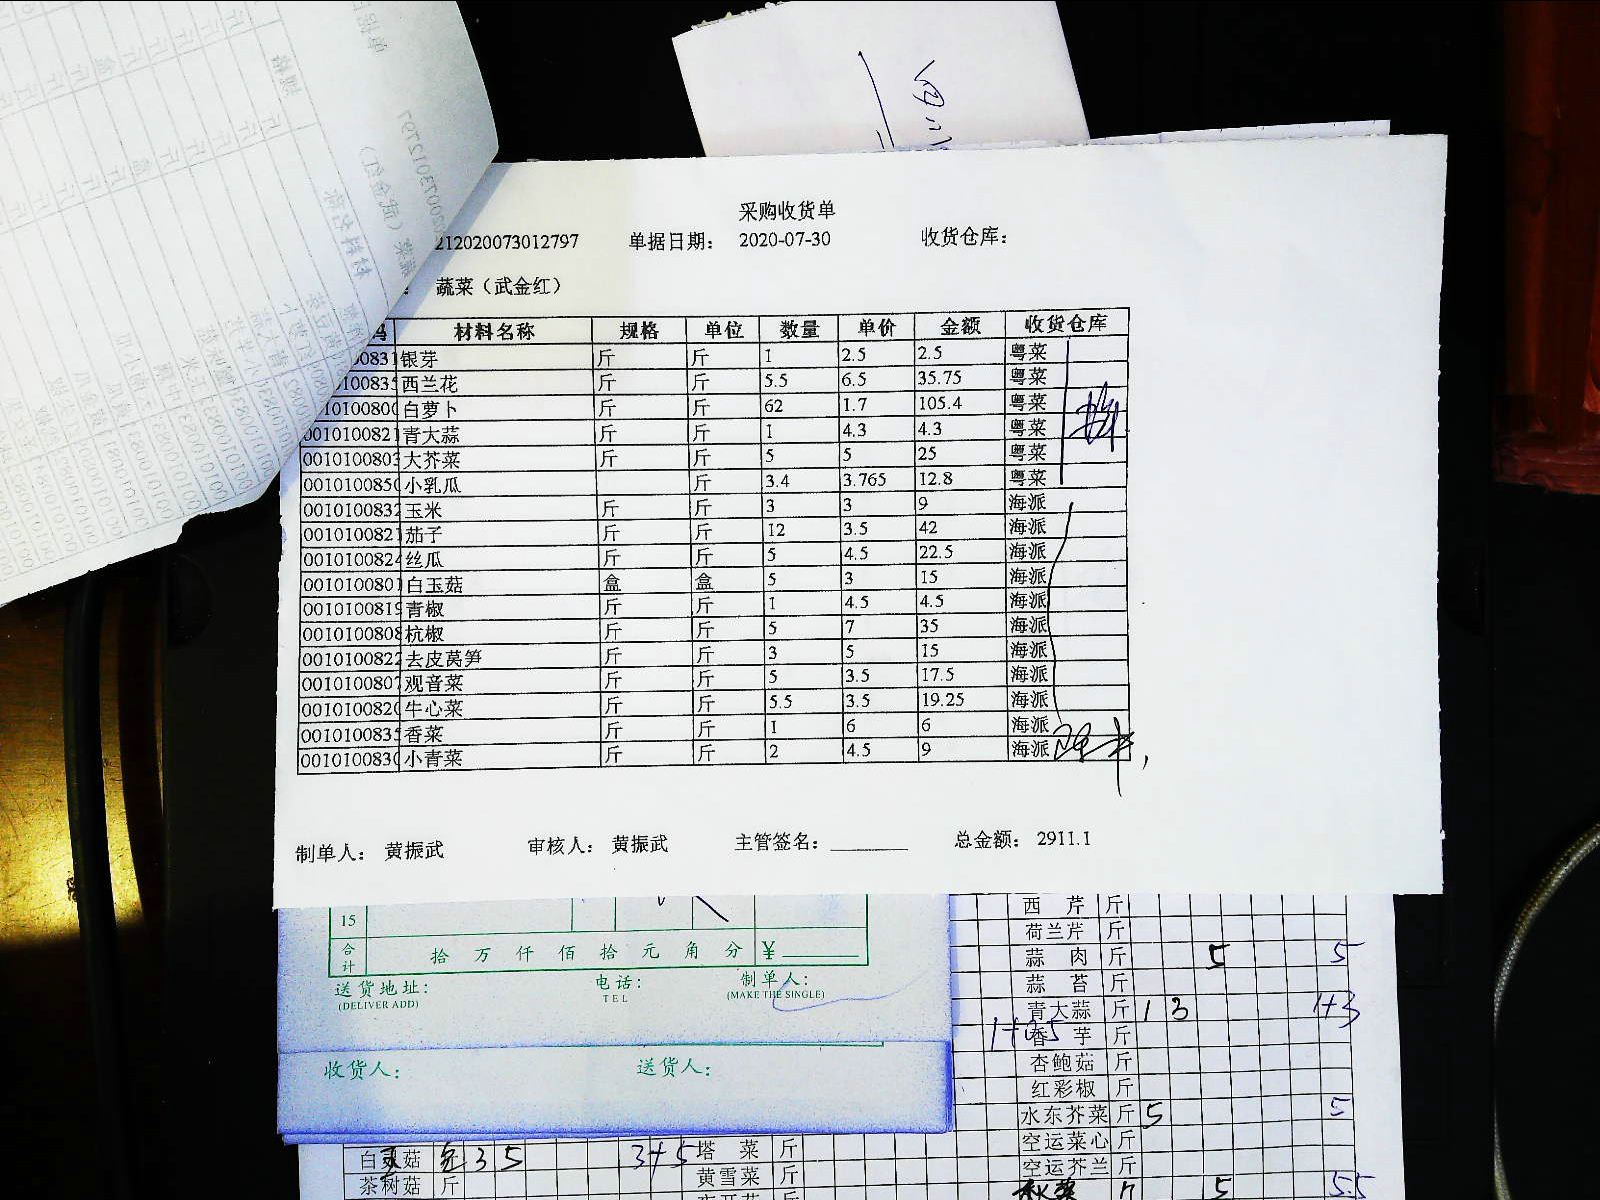 采购收货单
212020073012797 单据日期： 2020-07-30 收货仓库：
蔬菜（武金红）
材料名称 规格 单位 数量 单价 金额 收货仓库
银芽 斤 斤 1 2.5 2.5 粤菜
西兰花 斤 斤 5.5 6.5 35.75 粤菜
白萝卜 斤 斤 62 1.7 105.4 粤菜
0010100821 青大蒜 斤 斤 1 4.3 4.3 粤菜
0010100803 大芥菜 斤 斤 5 5 25 粤菜
001010085 小乳瓜 斤 3.4 3.765 12.8 粤菜
0010100832 玉米 斤 斤 3 3 9 海派
0010100821 茄子 斤 斤 12 3.5 42 海派
0010100824 丝瓜 斤 斤 5 4.5 22.5 海派
0010100801 白玉菇 盒 盒 5 3 15 海派
0010100819 青椒 斤 斤 1 4.5 4.5 海派
0010100808 杭椒 斤 斤 5 7 35 海派
0010100822 去皮莴笋 斤 斤 3 5 15 海派
0010100807 观音菜 斤 斤 5 3.5 17.5 海派
001010082 牛心菜 斤 斤 5.5 3.5 19.25 海派
0010100835 香菜 斤 斤 1 6 6 海派
001010083 小青菜 斤 斤 2 4.5 9 海派
制单人： 黄振武 审核人： 黄振武 主管签名： 总金额： 2911.1
15
合计 拾 万 仟 佰 拾 元 角 分 ¥
送货地址： 电话： 制单人：
(DELIVER ADD) TEL (MAKE THE SINGLE)
收货人： 送货人：
西芹 斤
荷兰芹 斤
蒜肉 斤 5 5
蒜苔 斤
青大蒜 斤 1 3 1+3
香芋 斤
杏鲍菇 斤
红彩椒 斤
水东芥菜 斤 5 5
空运菜心 斤
空运芥兰 斤
5 5.5
白灵菇 3 5 3+5 塔菜 斤
茶树菇 斤 黄雪菜 斤